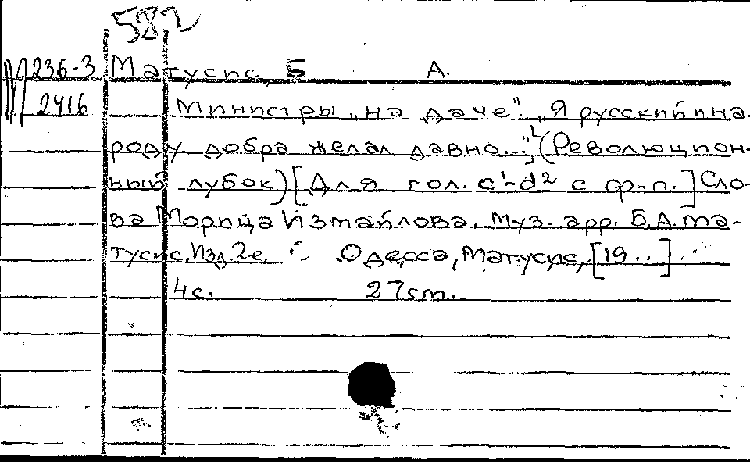 582
М 236-3 Матусис, Б А.
2416 Министры „на даче". „Я русский на-
роду добра желал давно...", (Революцион-
ный лубок) [Для гол. c¹-d² с ф-п.] Сло-
ва Морица Измайлова. Муз. арр. Б.А. Ма-
тусис. Изд. 2е. Одесса, Матусис, [19...]
4с. 27 cm.